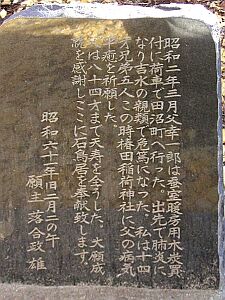 昭和二年三月父幸一郎は蚕室暖房用木炭買
付に荷車で田沼町へ行った。出先で肺炎に
なり吉水の親類で危篤になった。私は十四
才兄弟五人この時椿田稲荷神社に父の病気
平癒を祈願した。
父は八十四才まで天寿を全うした。大願成
就を感謝しここに石鳥居を奉献致します。
昭和六十一年旧一月二の午
願主 落合政雄